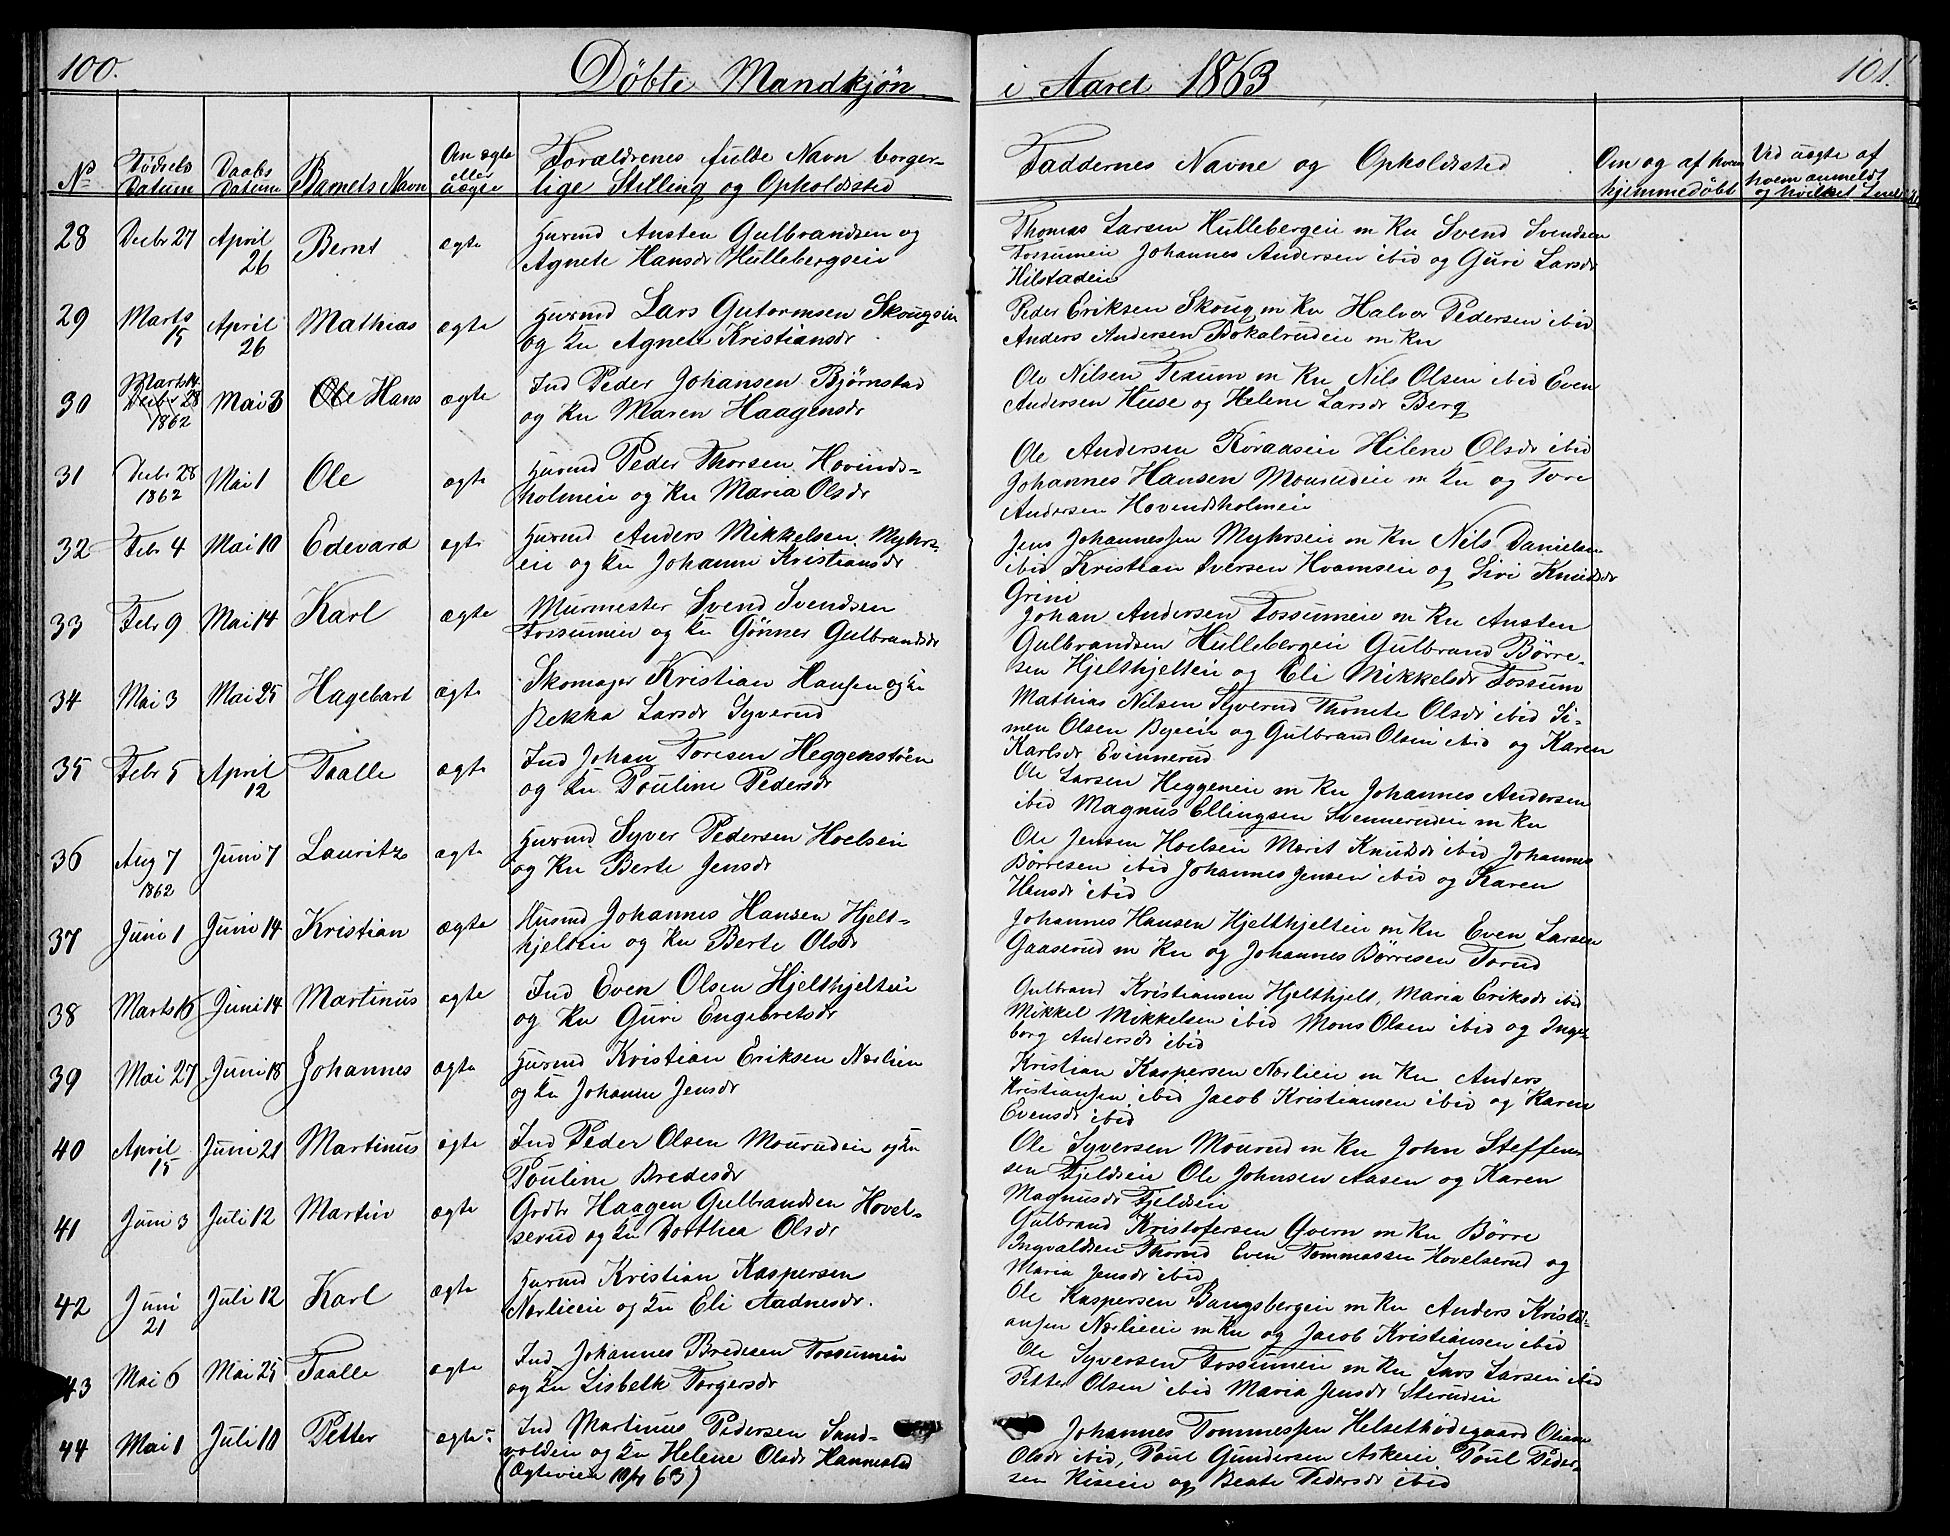 100. Døbte Mandkjøn i Aaret 1863 101.
No Fødsels Datum Daabs Datum Barnets Navn Om ægte eller uægte Forældrenes fulde Navn borgerlige Stilling og Opholdsted Faddernes Navne og Opholdsted Om og af hvem hjemmedøbt Ved uægte af hvem anmeldt og hvilket
28 Decbr 27 April 26 Bernt ægte Husmd Austen Gulbrandsen og
Agnete Hansdr Hullebergseie
Thomas Larsen Hullebergeie m Kn Svend Svendsen
Fossumeie Johannes Andersen ibid og Guri Larsdr
Hilstadeie
29 Marts 15 April 26 Mathias ægte Husmd Lars Gutormsen Skougseie
og Kn Agnete Kristiansdr
Peder Eriksen Skoug m Kn Halvor Pedersen ibid
Anders Andersen Bokalrudeie m Kn
30 Marts 14 Decbr 28 1862 Mai 3 Ole Hans ægte Ind Peder Johansen Bjørnstad
og Kn Maren Haagensdr
Ole Nilsen Texum m Kn Nils Olsen ibid Even
Andersen Huse og Helene Larsdr Berg
31 Decbr 28 1862 Mai 1 Ole ægte Husmd Peder Thorsen Hovinds-
holmeie og Kn Maria Olsdr
Ole Andersen Koraaseie Helene Olsdr ibid
Johannes Hansen Mourudeie m Kn og Tore
Andersen Hovendsholmeie
32 Febr 4 Mai 10 Edevard ægte Husmd Anders Mikkelsen Myhrs-
eie og Kn Johanne Kristiansdr
Jens Johannessen Myhrseie m Kn Nils Danielsen
ibid Kristian Iversen Hvamseie og Siri Knudsdr
Grini
33 Febr 9 Mai 14 Karl ægte Murmester Svend Svendsen
Fossumeie og Kn Gønner Gulbrandsdr
Johan Andersen Fossumeie m Kn Austen
Gulbrandsen Hullebergeie Gulbrand Børre-
sen Hjelthjelteie og Eli Mikkelsdr Fossum
34 Mai 3 Mai 25 Hagebart ægte Skomager Kristian Hansen og Kn
Rekka Larsdr Syverud
Mathias Nilsen Syverud Thonete Olsdr ibid Si-
men Olsen Byeie og Gulbrand Olsen ibid og Karen
Karlsdr Evinnerud
35 Febr 5 April 12 Taalle ægte Ind Johan Toresen Heggenstøen
og Kn Pouline Pedersdr
Ole Larsen Heggeneie m Kn Johannes Andersen
ibid Magnus Ellingsen Svennerudeie m Kn
36 Aug 7 1862 Juni 7 Lauritz ægte Husmd Syver Pedersen Hoelseie
og Kn Berte Jensdr
Ole Jensen Hoelseie Marit Knudsdr ibid Johannes
Børresen ibid Johannes Jensen ibid og Karen
Hansdr ibid
37 Juni 1 Juni 14 Kristian ægte Husmd Johannes Hansen Hjelt-
hjelteie og Kn Berte Olsdr
Johannes Hansen Hjelthjelteie m Kn Even Larsen
Gaaserud m Kn og Johannes Børresen Torud
38 Marts 16 Juni 14 Martinus ægte Ind Even Olsen Hjelthjelteie
og Kn Guri Engebretsdr
Gulbrand Kristiansen Hjelthjelt, Maria Eriksdr ibid
Mikkel Mikkelsen ibid Mons Olsen ibid og Inge-
borg Andersdr ibid
39 Mai 27 Juni 18 Johannes ægte Husmd Kristian Eriksen Nærlieie
og Kn Johanne Jensdr
Kristian Kaspersen Nærlieie m Kn Anders
Kristiansen ibid Jacob Kristiansen ibid og Karen
Evensdr ibid
40 April 15 Juni 21 Martinus ægte Ind Peder Olsen Mourudeie og Kn
Pouline Bredesdr
Ole Syversen Mourud m Kn John Steffen-
sen Fjeldseie Ole Johnsen Aasen og Karen
Magnusdr Fjeldseie
41 Juni 3 Juli 12 Martin ægte Grdbr Haagen Gulbrandsen Hovel-
serud og Kn Dorthea Olsdr
Gulbrand Kristofersen Qvern m Kn Børre
Ingvaldsen Thorud Even Tommassen Hovelserud og
Maria Jensdr ibid
42 Juni 21 Juli 12 Karl ægte Husmd Kristian Kaspersen
Nærlieeie og Kn Eli Aadnesdr.
Ole Kaspersen Bangsbergeie m Kn Anders Kristi-
ansen Nærlieeie m Kn og Jacob Kristiansen ibid
43 Mai 6 Mai 25 Taalle ægte Ind Johannes Bredesen Fossumeie
og Kn Lisbeth Torgersdr
Ole Syversen Fossumeie m Kn Lars Larsen ibid
Petter Olsen ibid Maria Jensdr Sterudeie
44 Mai 1 Juli 10 Petter ægte Ind Martinus Pedersen Sand-
voldeie og Kn Helene Olsdr Hannestad
(Ægteviede 10/4 63)
Johannes Tommessen Helsethødegaard Oliane
Olsdr ibid, Poul Gundersen Askeeie Poul Peder-
sen Kiseie og Beate Pedersdr ibid